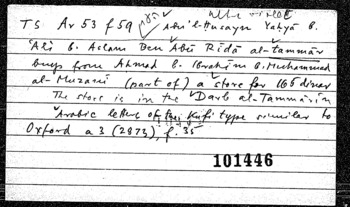 TS Ar 53 f 59 Abū'l-Husayn Yahyā b.
'Alī b. Aslam Ben Abū Ridā al-tammār
buys from Ahmed b. Ibrahīm b. Muhammad
al-Muzanī (part of) a store for 165 dinar
The store is in the Darb al-Tammārīn
Arabic letters of Kufi type similar to
Oxford a 3 (2873), f. 35
101446